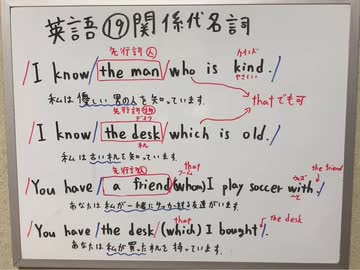 英語⑲関係代名詞
先行詞 人 カインド
/I know/the man/who is kind./
やさしい
私は優しい男の人を知っています。
thatでも可
先行詞 物
デスク
/I know/the desk/which is old./
机
私は古い机を知っています。
先行詞 人 that the friend
フーム
/You have/a friend/(whom)I play soccer with./
〜と
あなたは私が一緒にサッカーする友達がいます。
that the desk
/You have/the desk/(which) I bought/.
あなたは私が買った机を持っています。